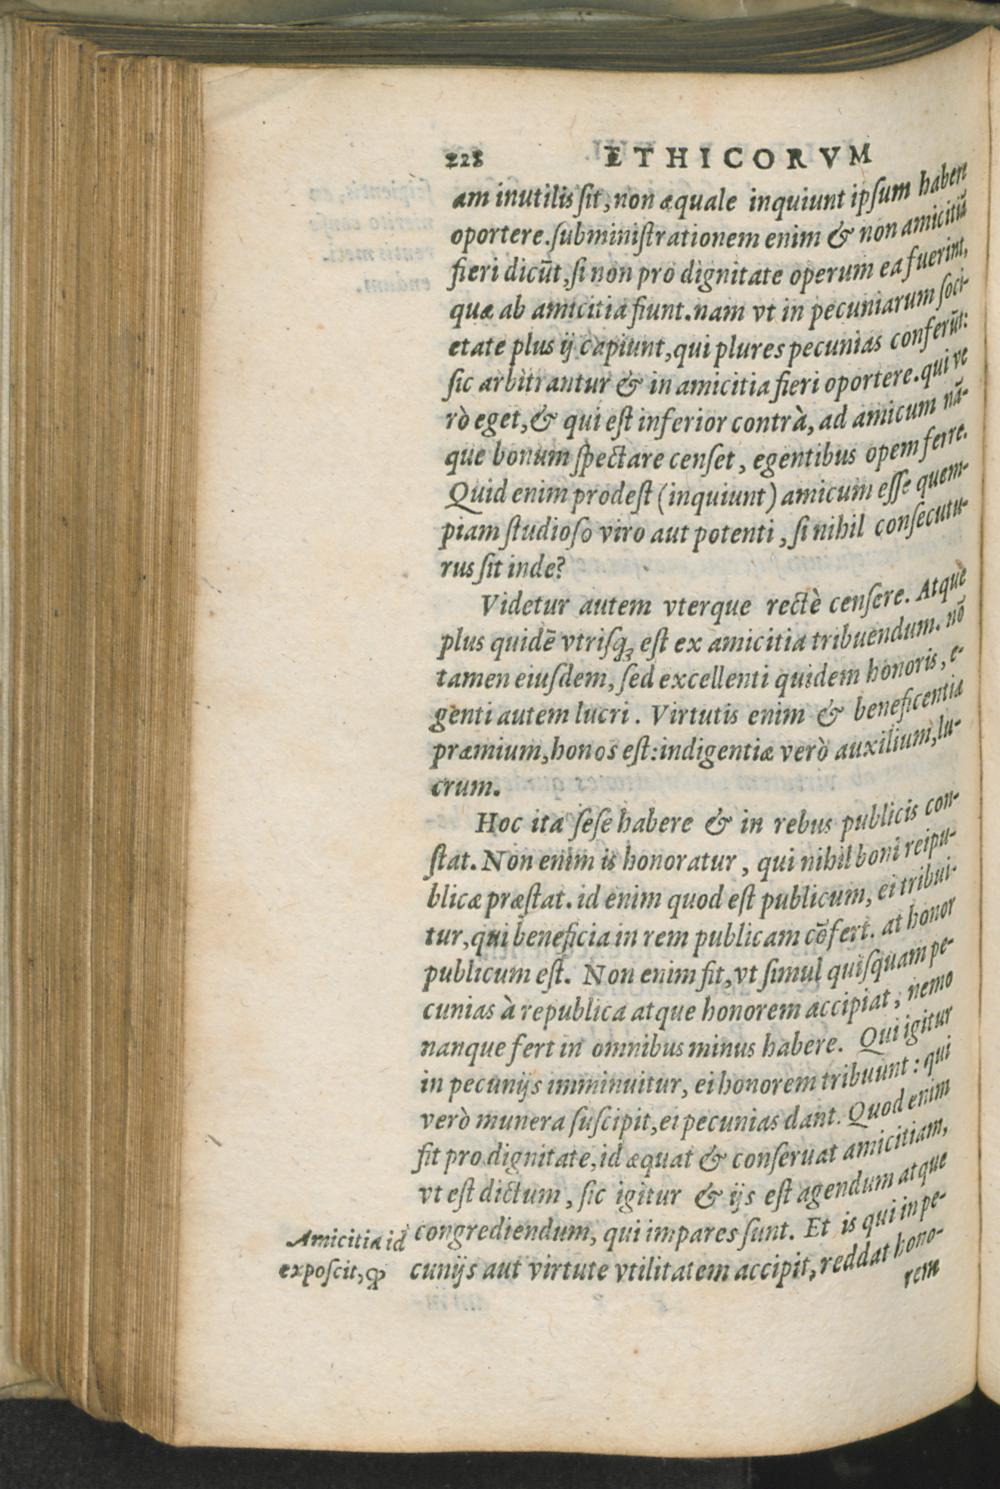 228 ETHICORVM
am inutilis ſit, non æquale inquiunt ipſum habere
oportere. ſubminiſtrationem enim & non amicitiā
fieri dicūt, ſi non pro dignitate operum ea fuerint,
quæ ab amicitia fiunt. nam vt in pecuniarum ſoci-
etate plus ij capiunt, qui plures pecunias conferūt:
ſic arbitrantur & in amicitia fieri oportere. qui ve
rò eget, & qui eſt inferior contrà, ad amicum nā-
que bonum ſpectare cenſet, egentibus opem ferre.
Quid enim prodeſt (inquiunt) amicum eſſe quem-
piam ſtudioſo viro aut potenti, ſi nihil conſecutu-
rus ſit inde?
Videtur autem vterque rectè cenſere. Atque
plus quidē vtriſq; eſt ex amicitia tribuendum. nō
tamen eiuſdem, ſed excellenti quidem honoris, e-
genti autem lucri. Virtutis enim & beneficentiæ
præmium, honos eſt: indigentiæ verò auxilium, lu-
crum.
Hoc ita ſeſe habere & in rebus publicis con-
ſtat. Non enim is honoratur, qui nihil boni reipu-
blicæ præſtat. id enim quod eſt publicum, ei tribui-
tur, qui beneficia in rem publicam cōfert. at honor
publicum eſt. Non enim fit, vt ſimul quiſquam pe-
cunias à republica atque honorem accipiat, nemo
nanque fert in omnibus minus habere. Qui igitur
in pecunijs imminuitur, ei honorem tribuunt: qui
verò munera ſuſcipit, ei pecunias dant. Quod enim
fit pro dignitate, id æquat & conſeruat amicitiam,
vt eſt dictum, ſic igitur & ijs eſt agendum atque
congrediendum, qui impares ſunt. Et is qui in pe-
cunijs aut virtute vtilitatem accipit, reddat hono-
rem
Amicitia id
expoſcit, ꝙ